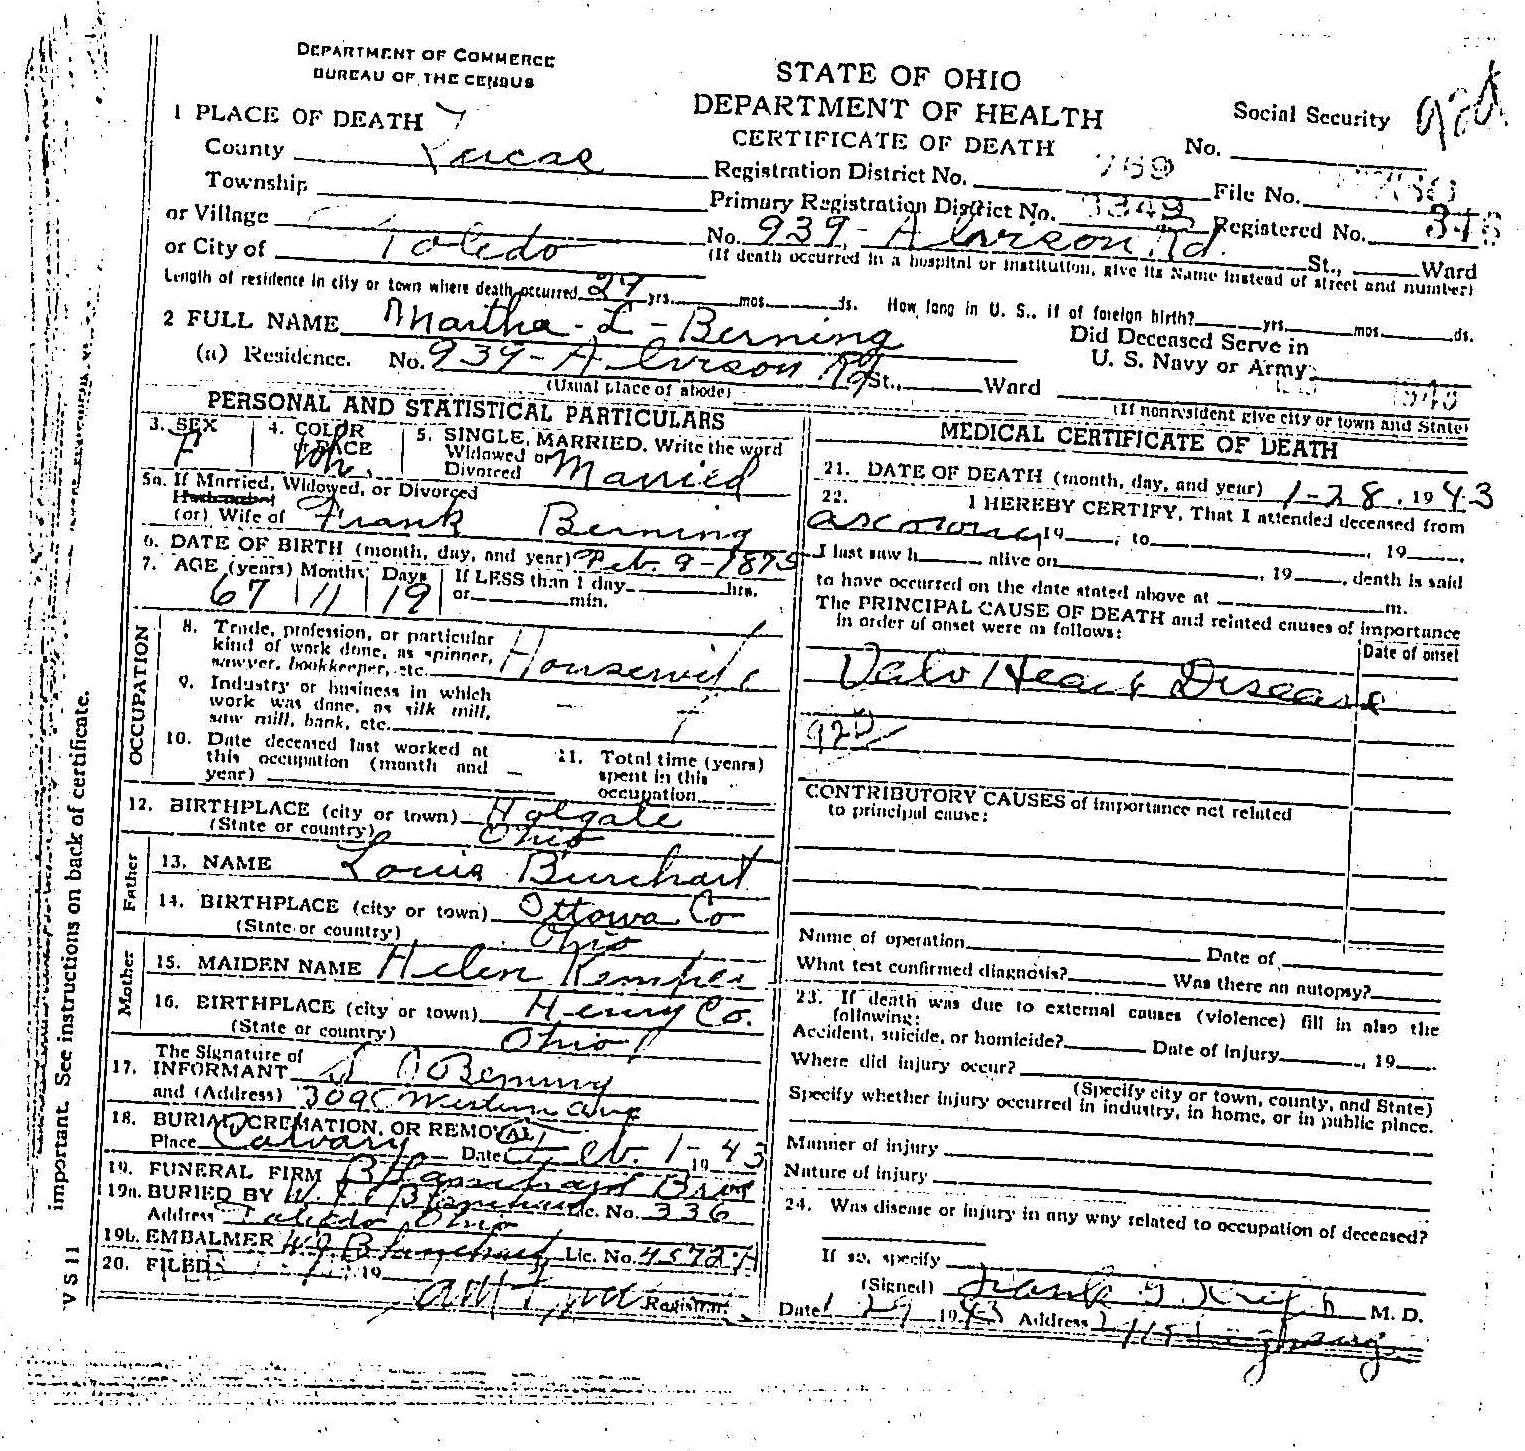 DEPARTMENT OF COMMERCE
BUREAU OF THE CENSUS
STATE OF OHIO
DEPARTMENT OF HEALTH
CERTIFICATE OF DEATH
Social Security
No.
1 PLACE OF DEATH
County Lucas
Registration District No. 769
File No.
Township
Primary Registration District No. 3349
Registered No. 346
or Village
or City of Toledo
No. 939 - Alvison Rd. St., Ward
(If death occurred in a hospital or institution, give its Name instead of street and number)
Length of residence in city or town where death occurred 27 yrs. mos. ds. How long in U. S., if of foreign birth? yrs. mos. ds.
2 FULL NAME Martha - L - Berning
Did Deceased Serve in
U. S. Navy or Army
(a) Residence. No. 939 - Alvison Rd St., Ward
(Usual place of abode)
(If nonresident give city or town and State)
PERSONAL AND STATISTICAL PARTICULARS
3. SEX
F
4. COLOR
RACE
Wh.
5. SINGLE, MARRIED, Write the word
Widowed or
Divorced Married
5a. If Married, Widowed, or Divorced
Husband of
(or) Wife of Frank Berning
6. DATE OF BIRTH (month, day, and year) Feb. 9 - 1875
7. AGE (years) Months Days If LESS than 1 day hrs.
or min.
67 11 19
OCCUPATION
8. Trade, profession, or particular
kind of work done, as spinner,
sawyer, bookkeeper, etc. Housewife
9. Industry or business in which
work was done, as silk mill,
saw mill, bank, etc.
10. Date deceased last worked at
this occupation (month and
year) —
11. Total time (years)
spent in this
occupation
12. BIRTHPLACE (city or town) Holgate
(State or country) Ohio
Father
13. NAME Louis Burchart
14. BIRTHPLACE (city or town) Ottowa Co
(State or country) Ohio
Mother
15. MAIDEN NAME Helen
16. BIRTHPLACE (city or town) Henry Co.
(State or country) Ohio
17. The Signature of
INFORMANT Berning
and (Address) Western Ave
18. BURIAL, CREMATION, OR REMOVAL
Place Calvary Date Feb. 1 - 1943
19. FUNERAL FIRM Blanchard Bros
19a. BURIED BY W. J. Blanchard Lic. No. 336
Address Toledo Ohio
19b. EMBALMER W J Blanchard Lic. No. 4572-A
20. FILED 19
Registrar.
MEDICAL CERTIFICATE OF DEATH
21. DATE OF DEATH (month, day, and year) 1-28. 1943
22. I HEREBY CERTIFY, That I attended deceased from
19 , to , 19 .
I last saw h alive on , 19 , death is said
to have occurred on the date stated above at m.
The PRINCIPAL CAUSE OF DEATH and related causes of importance
in order of onset were as follows:
Date of onset
Valv Heart Disease
CONTRIBUTORY CAUSES of importance not related
to principal cause:
Name of operation Date of
What test confirmed diagnosis? Was there an autopsy?
23. If death was due to external causes (violence) fill in also the
following:
Accident, suicide, or homicide? Date of injury , 19 .
Where did injury occur?
(Specify city or town, county, and State)
Specify whether injury occurred in industry, in home, or in public place.
Manner of injury
Nature of injury
24. Was disease or injury in any way related to occupation of deceased?
If so, specify
(Signed) Frank M. D.
Date 1 29 1943 Address
important. See instructions on back of certificate.
V S 11